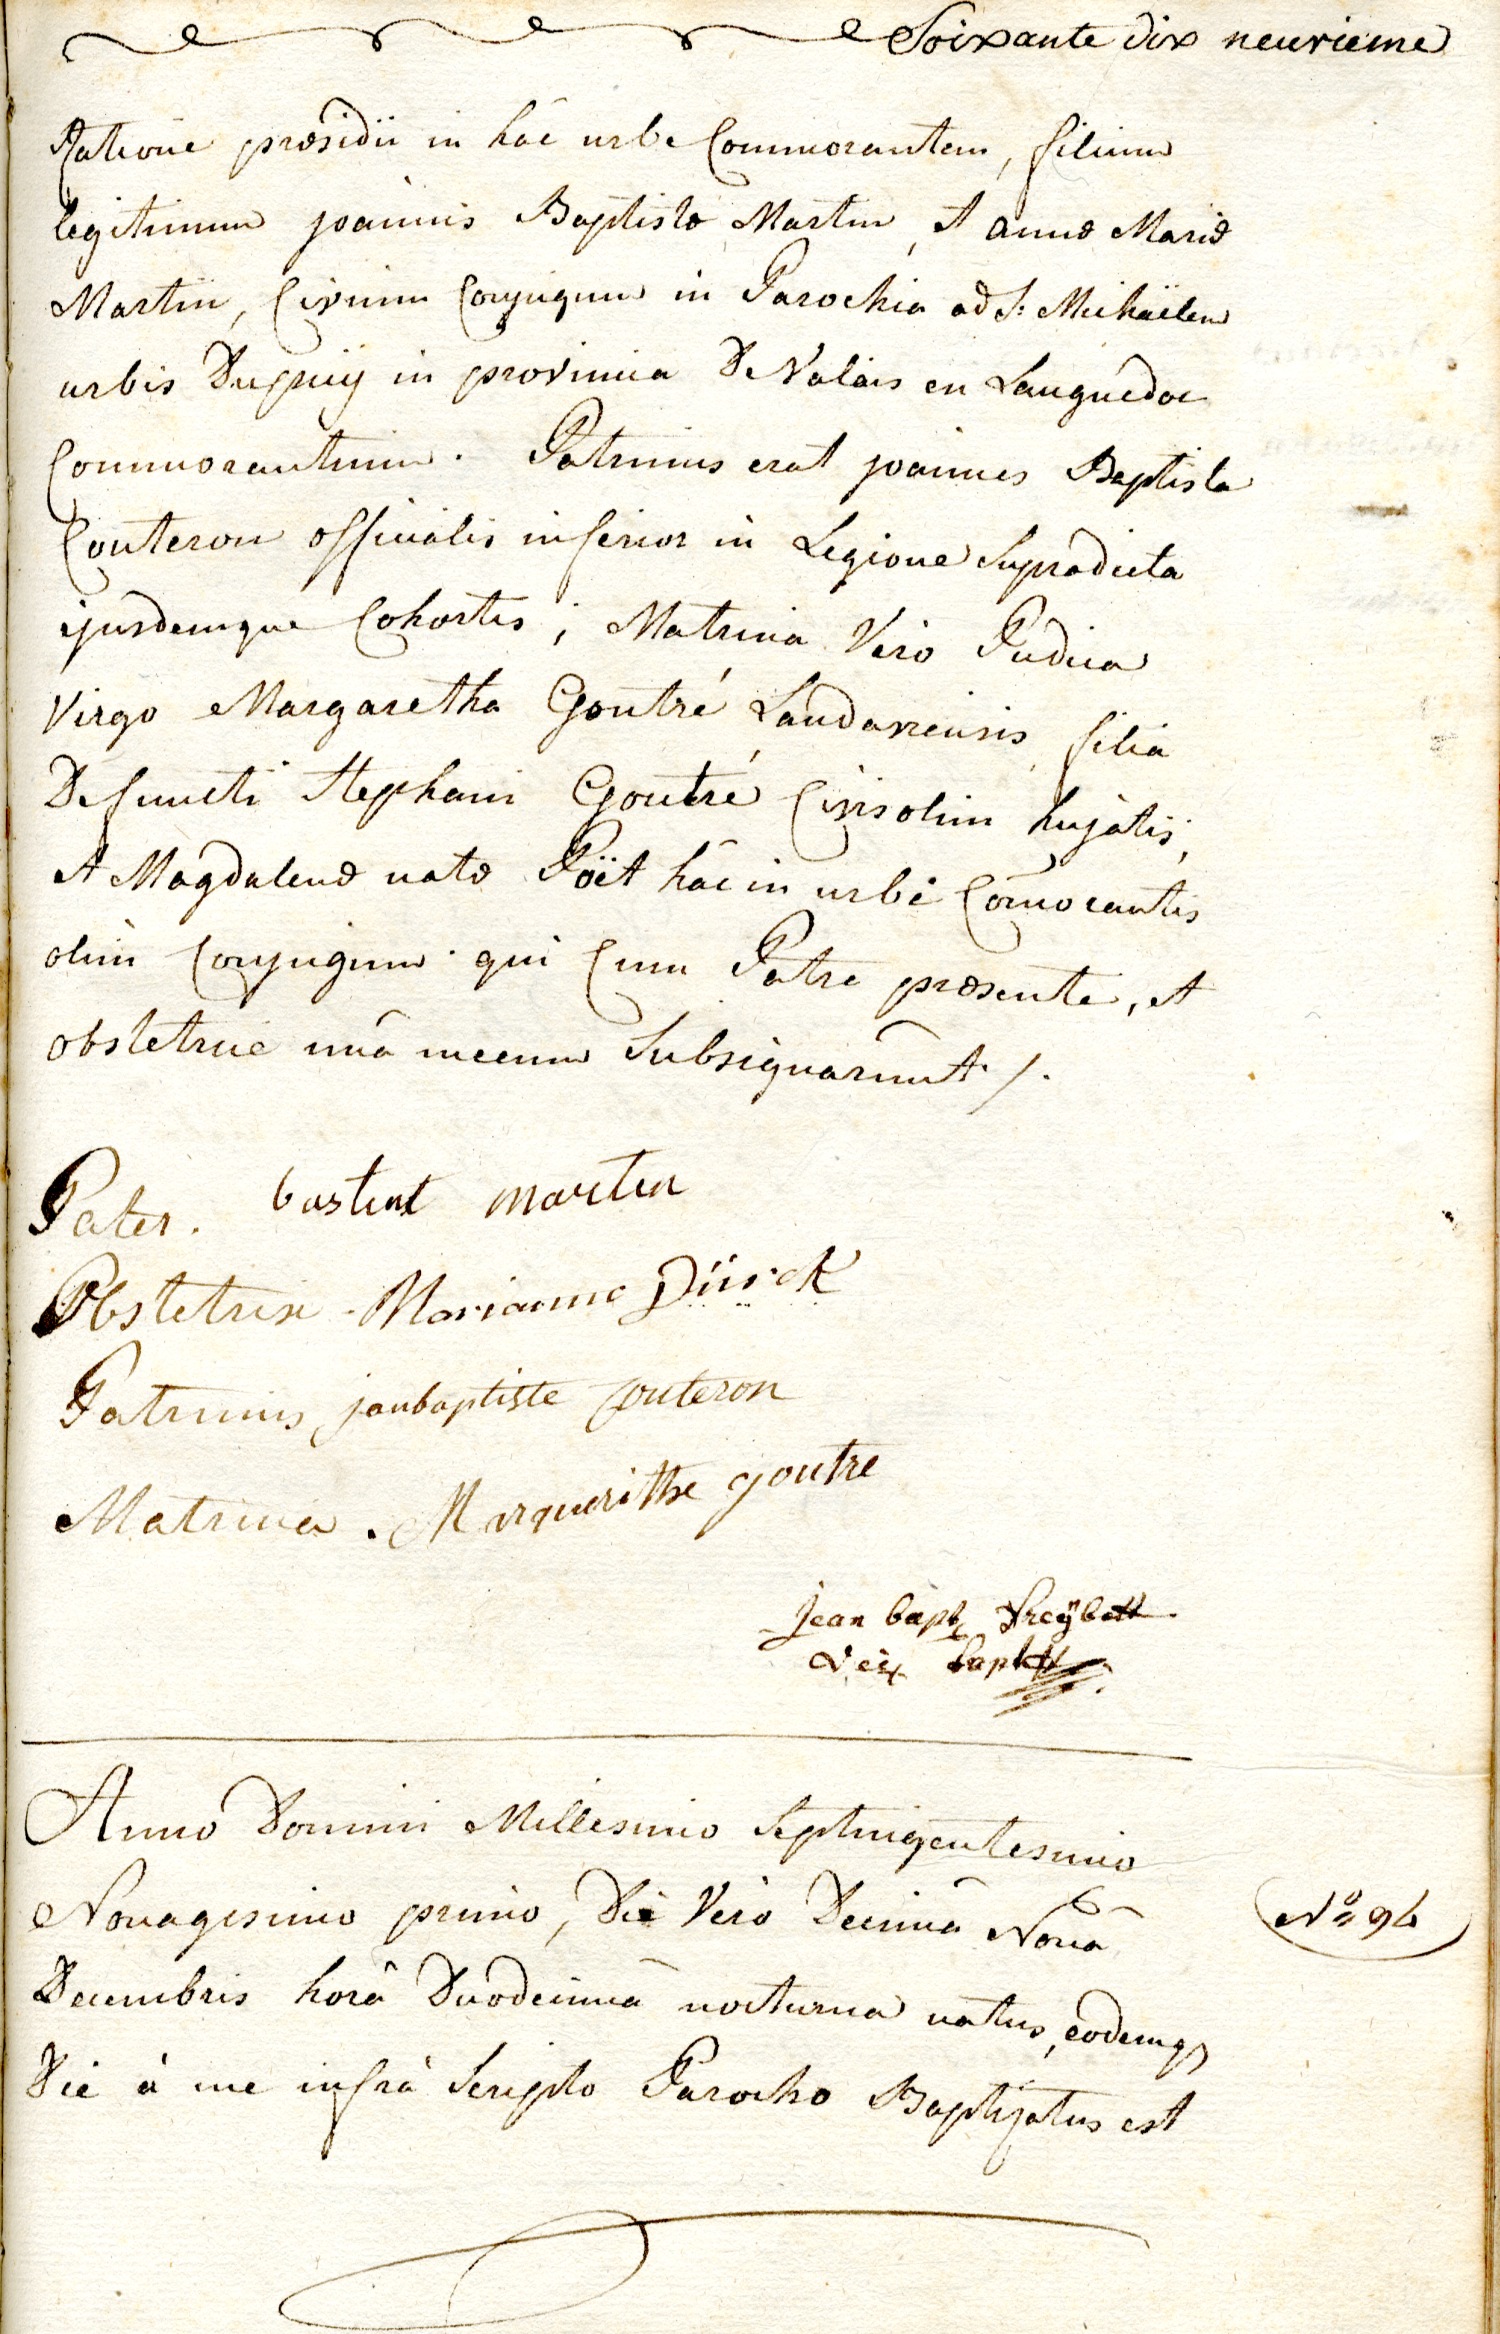 Soixante dix neuvieme
Ratione præsidii in hâc urbe Commorantem, filium
legitimum joannis Baptistæ Martin, et annæ Mariæ
Martin, Civium Conjugum in Parochia ad S: Mihäelem
urbis Dupuy in provincia De Valais en Languedoc
Commorantium. Patrinus erat joannes Baptista
Couteron officialis inferior in Legione Supradicta
ejusdemque Cohortis; Matrina Vero Pudica
Virgo Margaretha Goutré Landaviensis, filia
Defuncti Stephani Goutré Civis olim hujatis,
et Magdalenæ natæ Poët hâc in urbe Com̄orantis
olim Conjugum. qui Cum Patre præsente, et
obstetrice unâ mecum Subsignarunt /.
Pater. bastient martin
Obstetrix. Marianne Dürck
Patrinus, janbaptiste couteron
Matrina. Marguerithe goutre
jean bapt
Anno Domini Millesimo Septingentesimo
Nonagesimo primo, Die Vero Decimâ Nonâ
Decembris horâ Duodecimâ nocturna natus, eodemq
Die à me infrà Scripto Parocho Baptizatus est
Nº 94